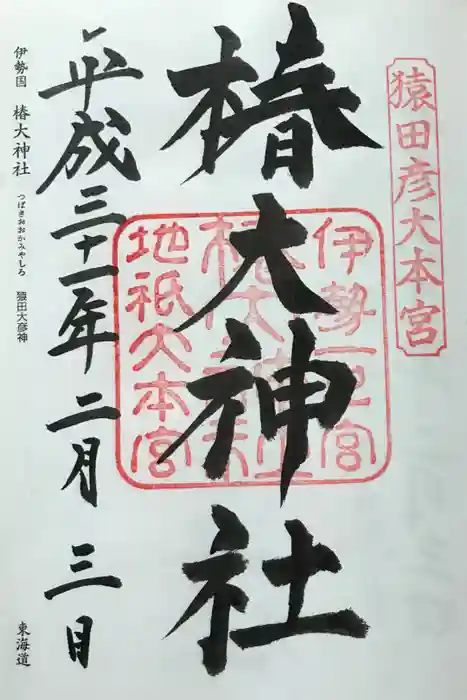 猿田彦大本宮
椿大神社
伊勢一之宮
椿大神社
地祇大本宮
平成三十一年二月三日
伊勢国 椿大神社 つばきおおかみやしろ 猿田大彦神
東海道